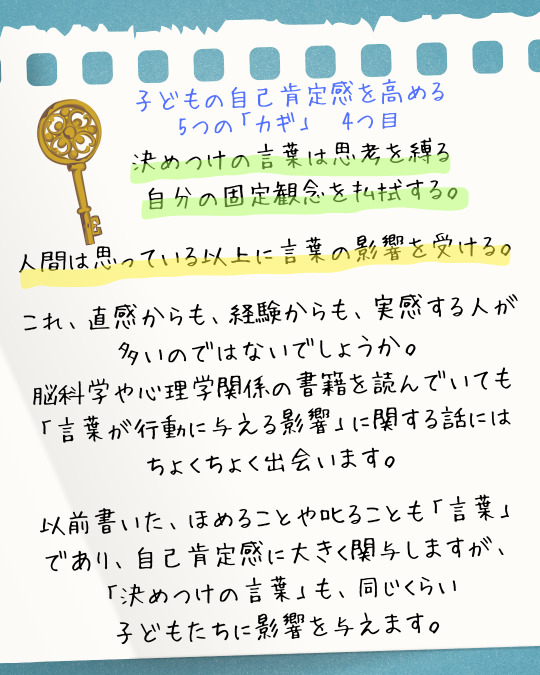 子どもの自己肯定感を高める
5つの「カギ」 4つ目
決めつけの言葉は思考を縛る
自分の固定観念を払拭する。
人間は思っている以上に言葉の影響を受ける。
これ、直感からも、経験からも、実感する人が
多いのではないでしょうか。
脳科学や心理学関係の書籍を読んでいても
「言葉が行動に与える影響」に関する話には
ちょくちょく出会います。
以前書いた、ほめることや叱ることも「言葉」
であり、自己肯定感に大きく関与しますが、
「決めつけの言葉」も、同じくらい
子どもたちに影響を与えます。